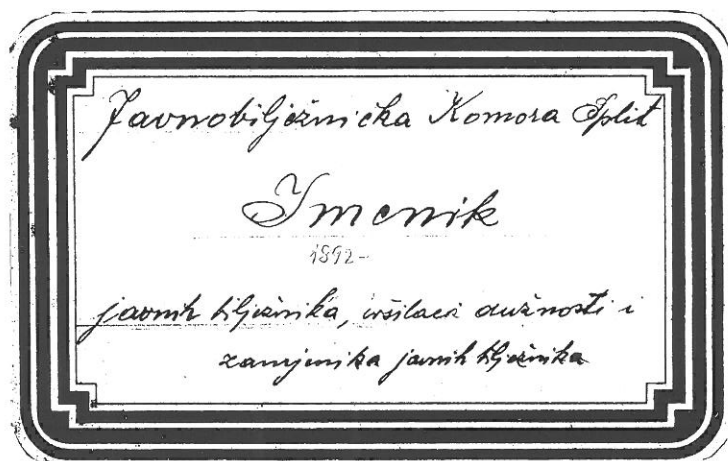 Javnobilježnička Komora Split
Imenik
1892-
javnih bilježnika, vršilaca dužnosti i
zamjenika javnih bilježnika